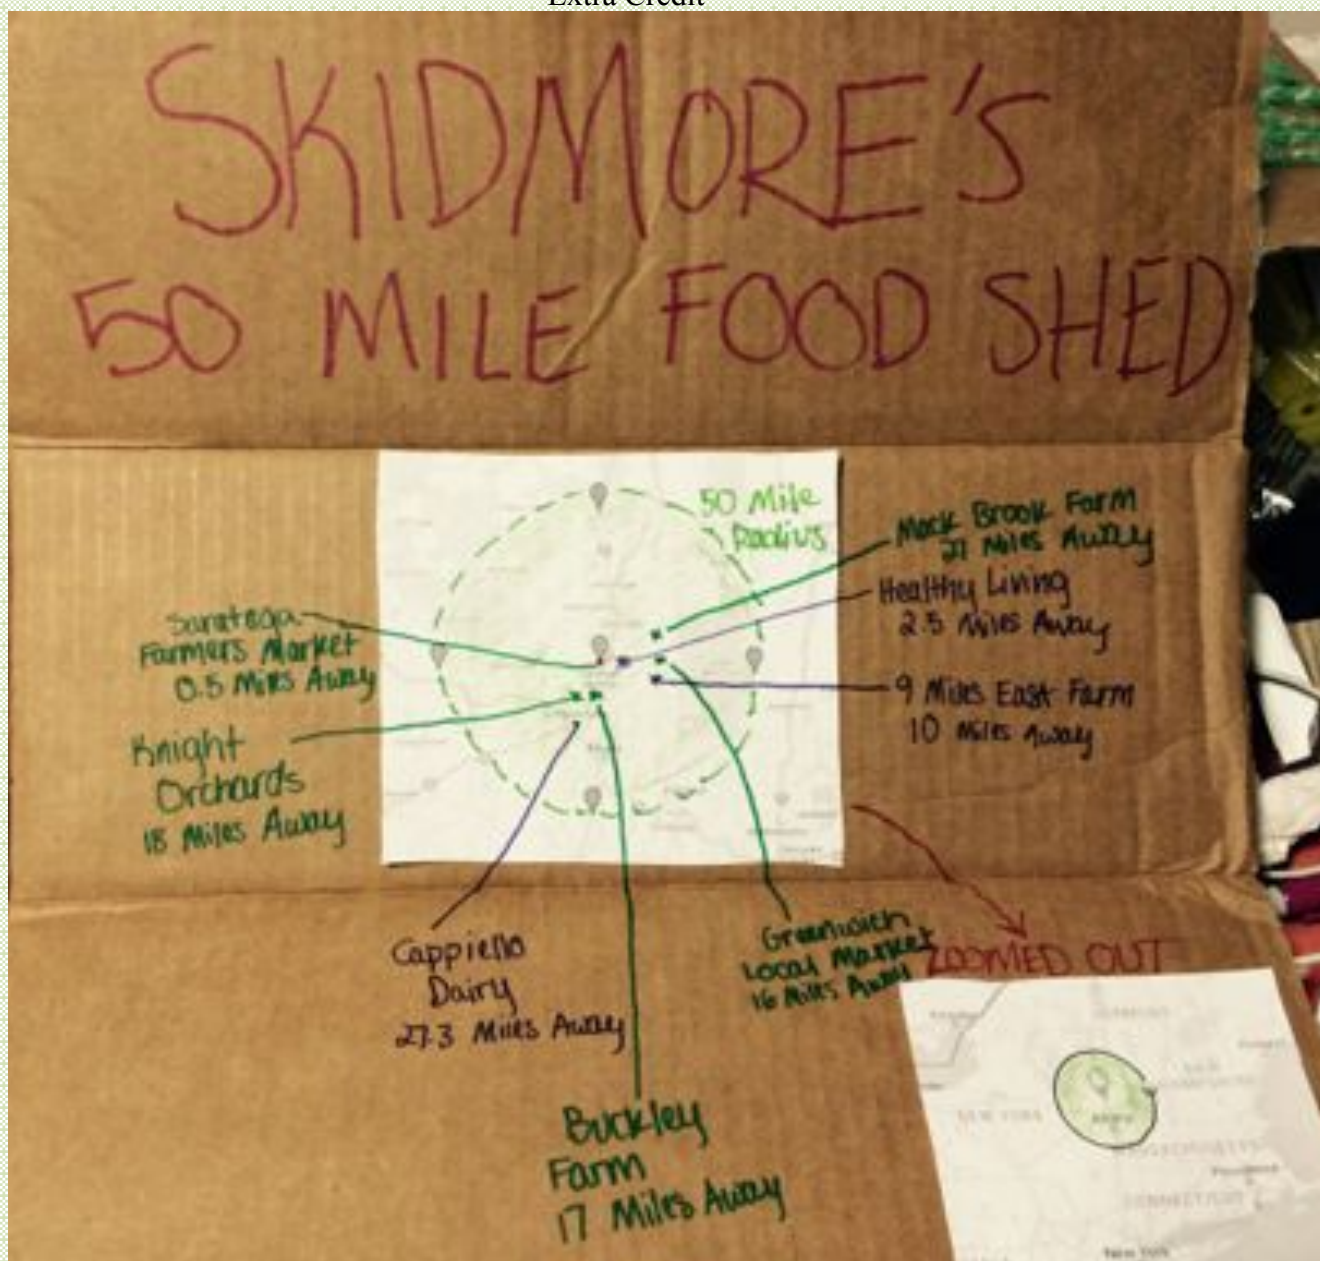 Extra Credit
SKIDMORE'S
50 MILE FOOD SHED
50 Mile
Radius
Mack Brook Farm
21 Miles Away
Healthy Living
2.5 Miles Away
9 Miles East Farm
10 Miles Away
Saratoga
Farmers Market
0.5 Miles Away
Knight
Orchards
18 Miles Away
Cappiello
Dairy
27.3 Miles Away
Buckley
Farm
17 Miles Away
Greenwich
Local Market
16 Miles Away
ZOOMED OUT
NEW YORK
New York